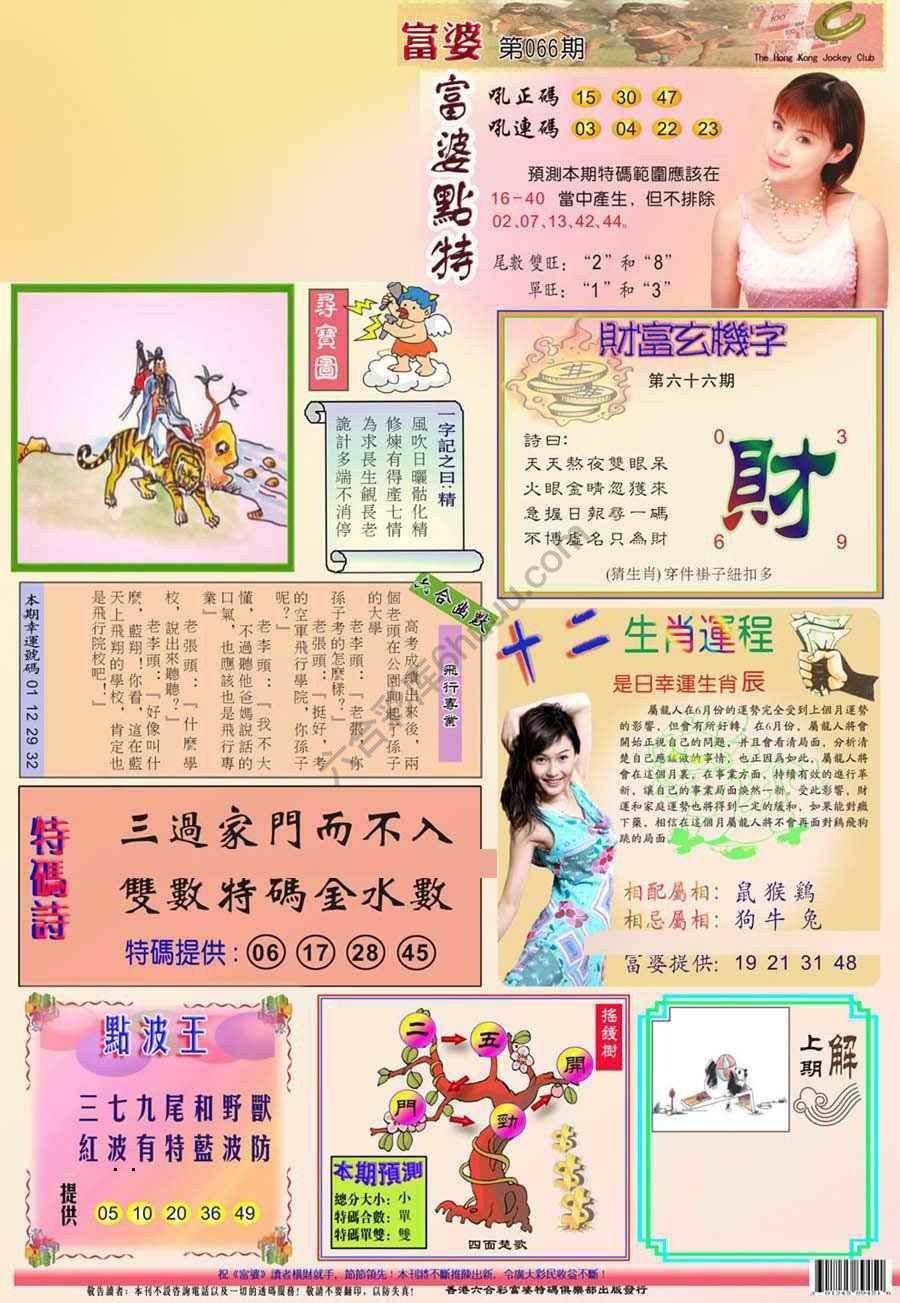 富婆 第066期
The Hong Kong Jockey Club
富婆點特
吼正碼 15 30 47
吼連碼 03 04 22 23
預測本期特碼範圍應該在
16-40 當中產生，但不排除
02、07、13、42、44。
尾數雙旺：“2”和“8”
單旺：“1”和“3”
尋寶圖
一字記之曰：精
風吹日曬骷化精
修煉有得產七情
為求長生覬長老
詭計多端不消停
財富玄機字
第六十六期
詩曰：
天天熬夜雙眼呆
火眼金睛忽獲來
急握日報尋一碼
不博虛名只為財
0 3
財
6 9
(猜生肖)穿件褂子紐扣多
六合幽默
飛行專業
高考成績出來後，兩
個老頭在公園聊起了孫子
的大學
老李頭：『老張，你
孫子考的怎麼樣？』
老張頭：『挺好，考
的空軍飛行學院，你孫子
呢？』
老李頭：『我不大
懂，不過聽他爸媽說話的
口氣，也應該也是飛行專
業』
老張頭：『什麼學
校，說出來聽聽？』
老李頭：『好像叫什
麼，藍翔！你看，這在藍
天上飛翔的學校，肯定也
是飛行院校吧！』
本期幸運號碼 01 12 29 32
十二生肖運程
是日幸運生肖辰
屬龍人在6月份的運勢完全受到上個月運勢
的影響，但會有所好轉，在6月份，屬龍人將會
開始正視自己的問題，并且會看清局面，分析清
楚自己應該做的事情，也正因為如此，屬龍人將
會在這個月裏，在事業方面，持續有效的進行革
新，讓自己的事業局面煥然一新，受此影響，財
運和家庭運勢也將得到一定的緩和，如果能對癥
下藥，相信在這個月屬龍人將不會再面對鷄飛狗
跳的局面。
相配屬相：鼠猴鷄
相忌屬相：狗牛兔
富婆提供：19 21 31 48
特碼詩
三過家門而不入
雙數特碼金水數
特碼提供：06 17 28 45
點波王
三七九尾和野獸
紅波有特藍波防
提供 05 10 20 36 49
搖錢樹
二 五 開 門 勁
本期預測
總分大小：小
特碼合數：單
特碼單雙：雙
四面楚歌
上期解
祝《富婆》讀者橫財就手，節節領先！本刊將不斷推陳出新，令廣大彩民收益不斷！
敬告讀者：本刊不設咨詢電話以及一切的透碼服務！敬請不要翻印，以防失真！
香港六合彩富婆特碼俱樂部出版發行